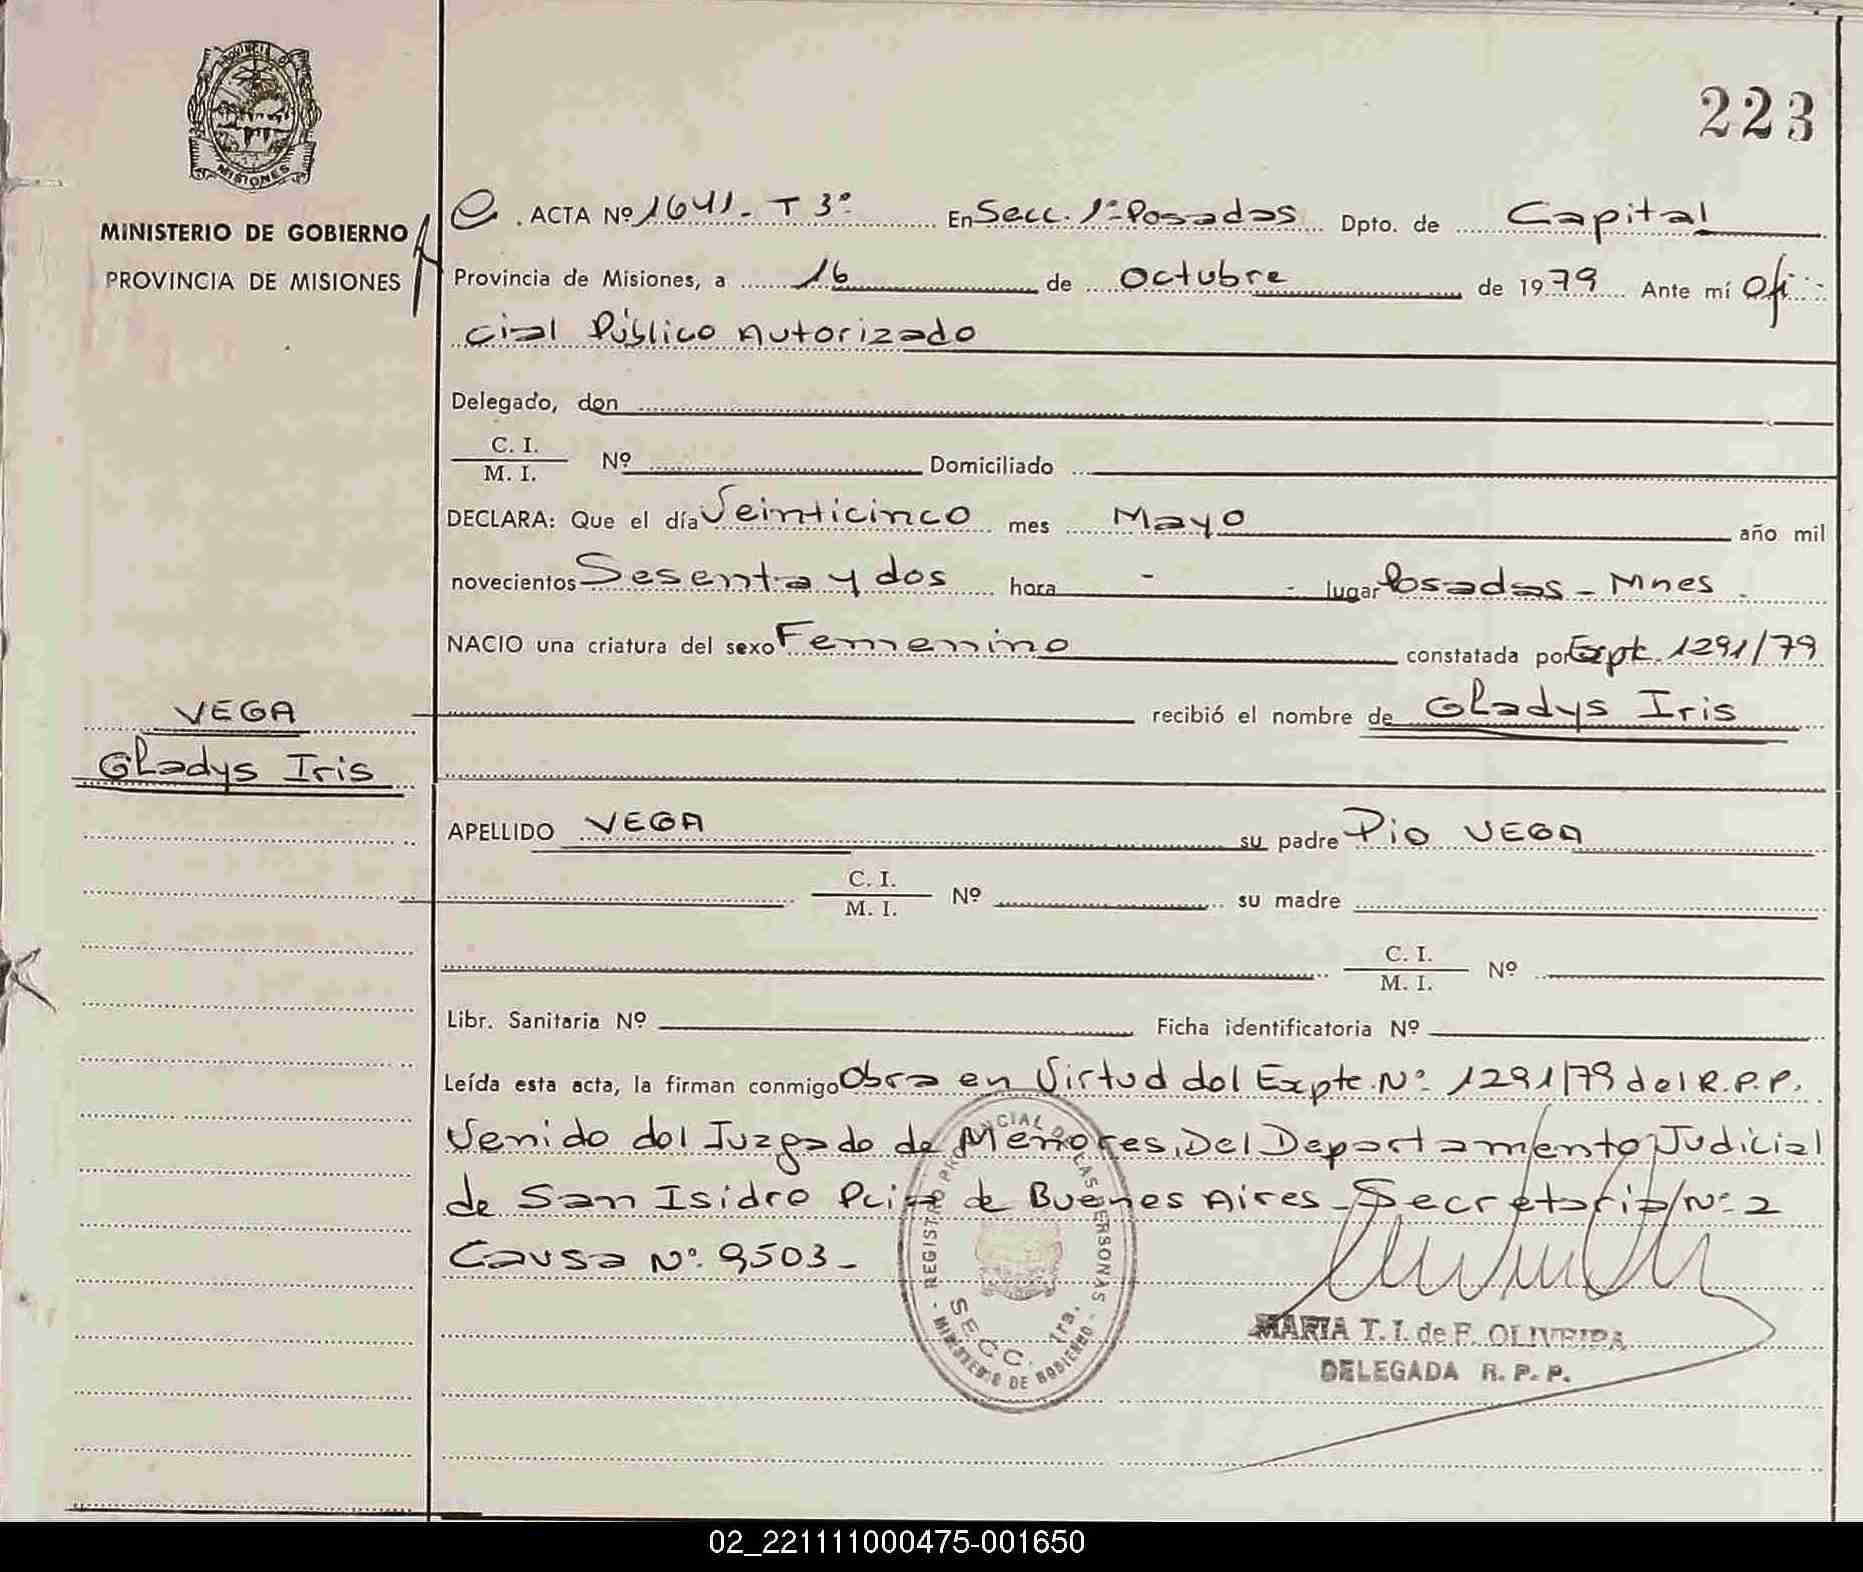 223
PROVINCIA DE
MISIONES
MINISTERIO DE GOBIERNO
PROVINCIA DE MISIONES
ACTA Nº 1641 - T 3º En Secc. 1ª Posadas Dpto. de Capital
Provincia de Misiones, a 16 de Octubre de 1979 Ante mí Ofi-
cial Público Autorizado
Delegado, don
C. I.
M. I. Nº Domiciliado
DECLARA: Que el día Veinticinco mes Mayo año mil
novecientos Sesenta y dos hora - - lugar Posadas - Mnes
NACIO una criatura del sexo Femenino constatada por Expte. 1291/79
recibió el nombre de Gladys Iris
VEGA
Gladys Iris
APELLIDO VEGA su padre Pio VEGA
C. I.
M. I. Nº su madre
C. I.
M. I. Nº
Libr. Sanitaria Nº Ficha identificatoria Nº
Leída esta acta, la firman conmigo Obra en Virtud del Expte. Nº 1291/79 del R.P.P.
Venido del Juzgado de Menores, Del Departamento Judicial
de San Isidro Pcia de Buenos Aires - Secretaria Nº 2
Causa Nº 9503 -
REGISTRO PROVINCIAL DE LAS PERSONAS
SECC. 1ra.
MINISTERIO DE GOBIERNO
MARIA T. I. de F. OLIVEIRA
DELEGADA R. P. P.
02_221111000475-001650